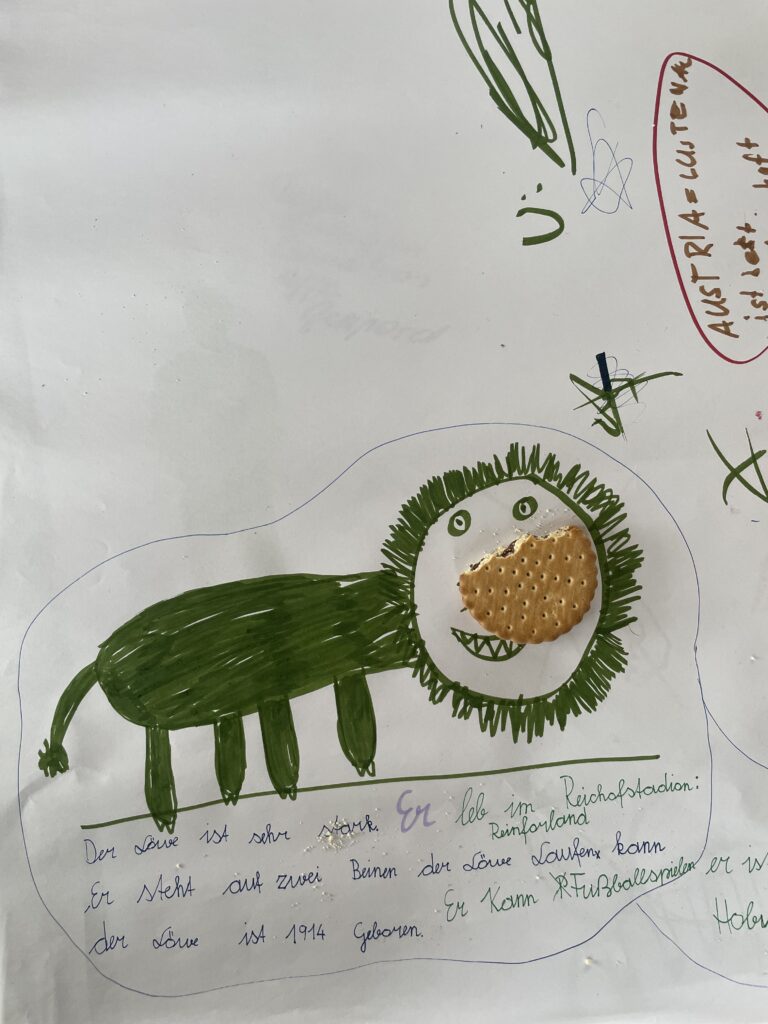 AUSTRIA=LUSTENA
ist
Der Löwe ist sehr stark. Er leb im Reichofstadion:
Reinforland
Er steht auf zwei Beinen der Löwe Laufen kann
Er Kann Fußballspielen er is
der Löwe ist 1914 Geboren.
Hob